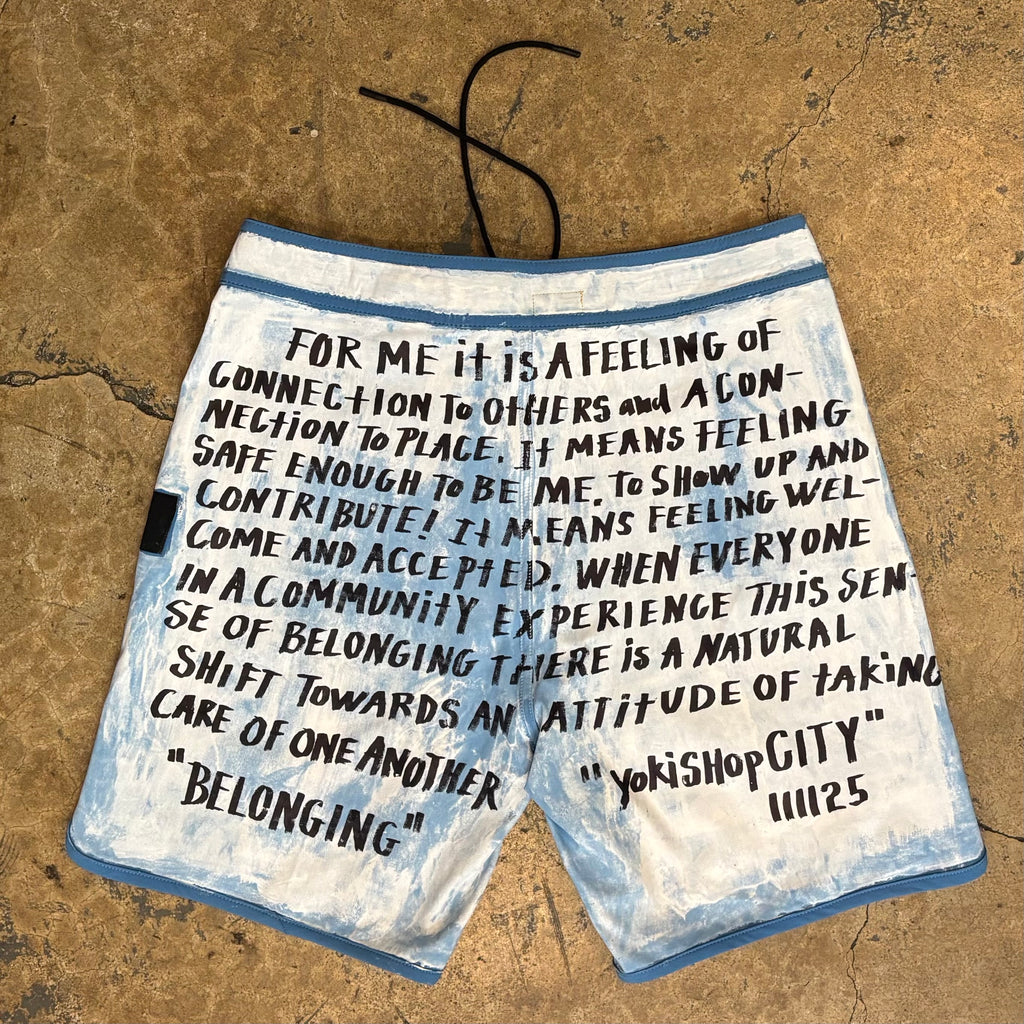 FOR ME it is A FEELING OF
CONNECtION To OtHERS and A CON-
NECtION TO PLACE. It MEANS FEELING
SAFE ENOUGH To BE ME. To SHoW UP AND
CONTRIBUTE! It MEANS FEELING WEL-
COME AND ACCEPtED. WHEN EVERYONE
IN A COMMUNitY EXPERIENCE THiS SEN-
SE OF BELONGING THERE is A NATURAL
SHIFT TOWARDS AN ATTitUDE OF tAKiNG
CARE OF ONE ANOTHER
"BELONGING"
"yoKiSHop CITY"
111125